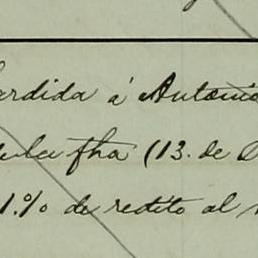 ardida á Antonio
fha (13. de
1.% de redito al